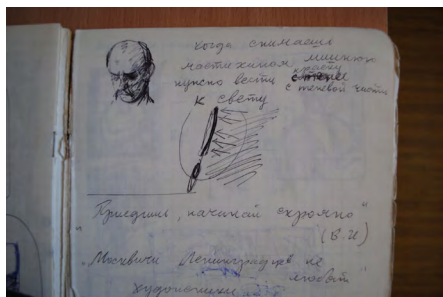 когда снимаешь
мастихином лишнюю
краску
нужно вести с тене
с теневой части
к свету
"Приедешь, начинай скромно"
(В.И)
"Москвичи Ленинградцев не
любят"
художники